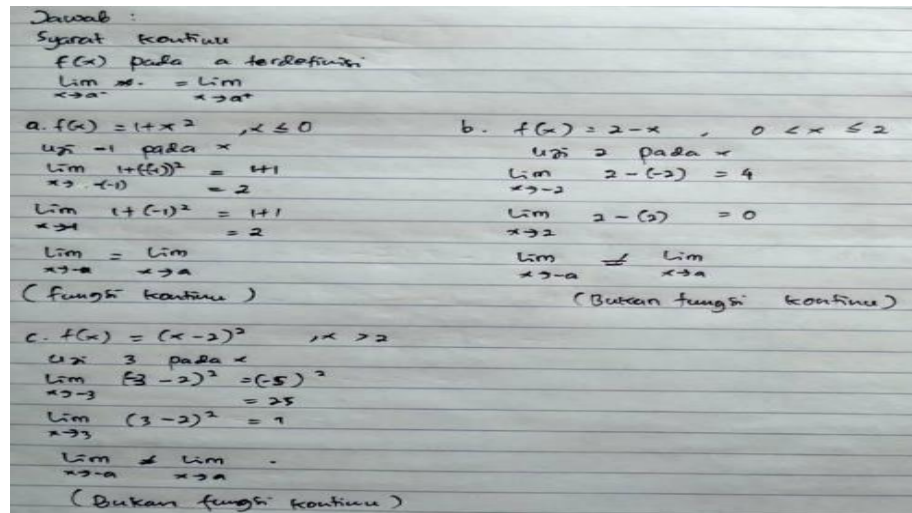 Jawab :
Syarat kontinu
f(x) pada a terdefinisi
Lim = Lim
x→a⁻ x→a⁺
a. f(x) = 1+x² , x ≤ 0
uji -1 pada x
Lim 1+(-(-1))² = 1+1
x→ -(-1) = 2
Lim 1+(-1)² = 1+1
x→-1 = 2
Lim = Lim
x→-a x→a
(fungsi kontinu)
b. f(x) = 2-x , 0 < x ≤ 2
uji 2 pada x
Lim 2-(-2) = 4
x→-2
Lim 2-(2) = 0
x→2
Lim ≠ Lim
x→-a x→a
(Bukan fungsi kontinu)
c. f(x) = (x-2)² , x > 2
uji 3 pada x
Lim (-3-2)² = (-5)²
x→-3 = 25
Lim (3-2)² = 1
x→3
Lim ≠ Lim .
x→-a x→a
(Bukan fungsi kontinu)